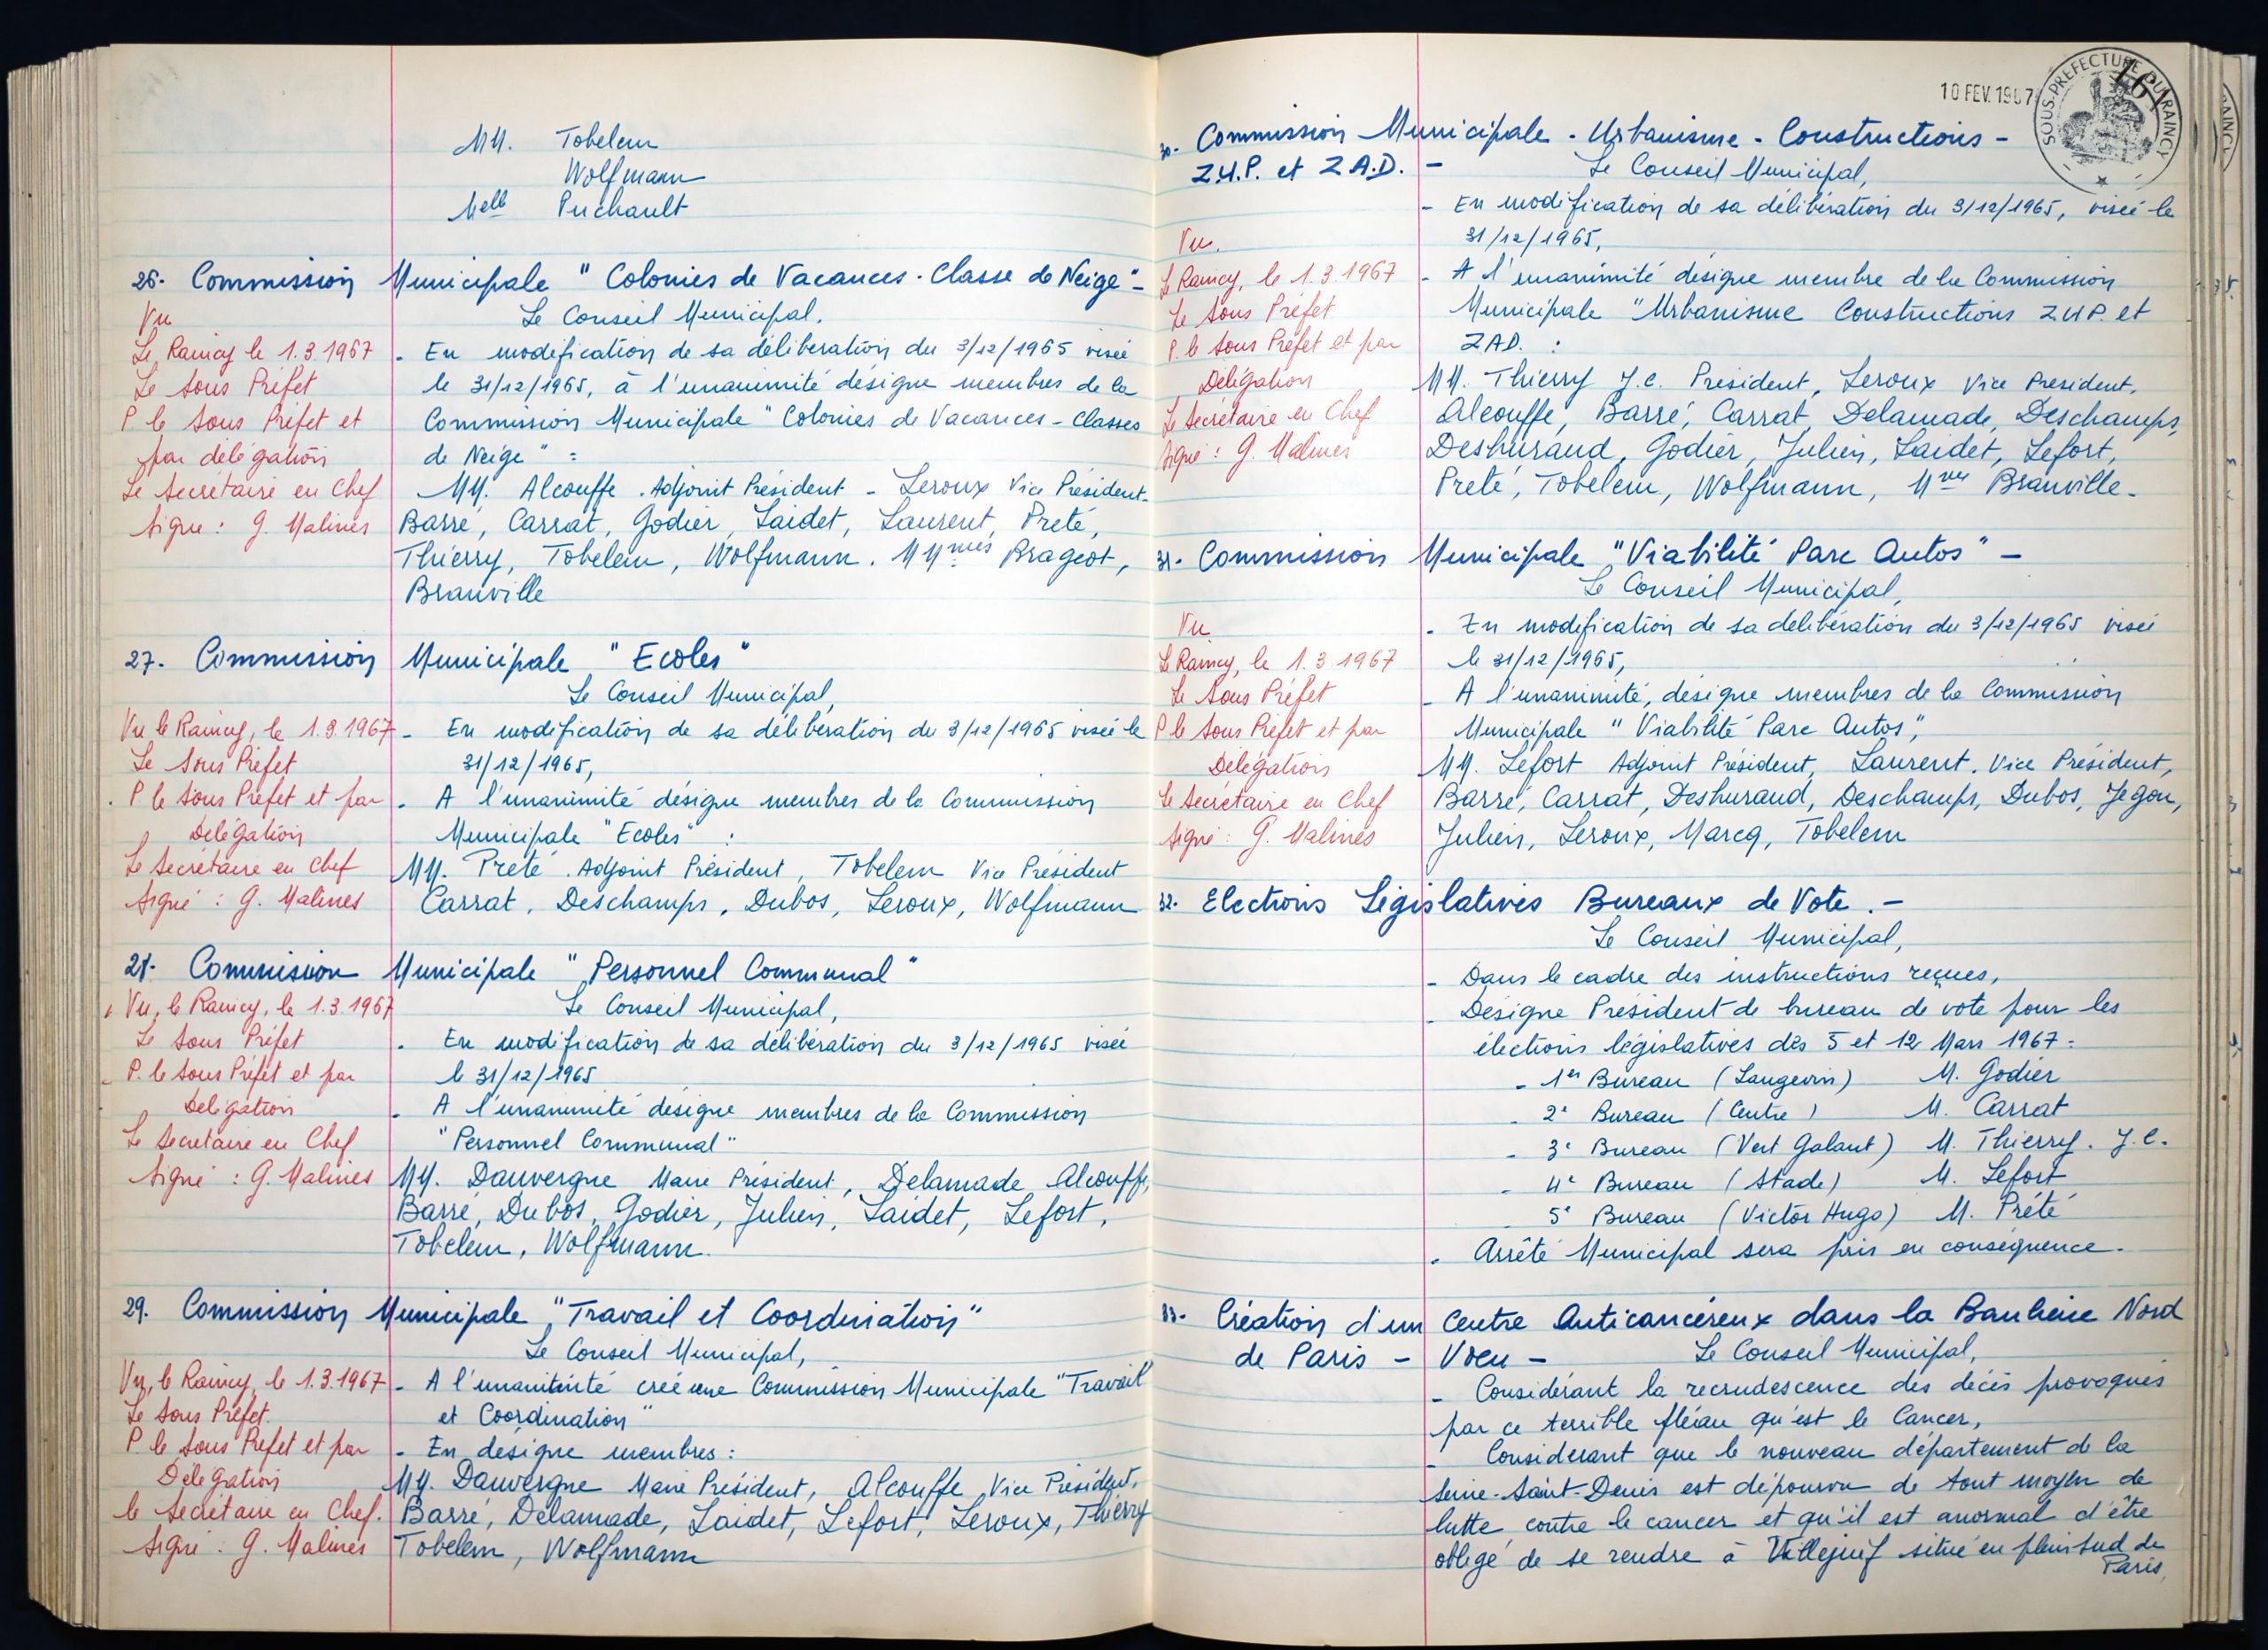 MM. Tobelem
Wolfmann
Melle Puchault
26. Commission Municipale "Colonies de Vacances - Classe de Neige" -
Le Conseil Municipal.
Vu
Le Raincy le 1.3.1967
Le Sous Préfet
P. le Sous Préfet et
par délégation
Le Secrétaire en Chef
Signé : G. Malines
- En modification de sa délibération du 3/12/1965 visée
le 31/12/1965, à l'unanimité désigne membres de la
Commission Municipale "Colonies de Vacances - Classes
de Neige" :
MM. Alcouffe. Adjoint Président - Leroux Vice Président -
Barré, Carrat, Godier, Laidet, Laurent, Preté,
Thierry, Tobelem, Wolfmann. MMmes Brageot,
Branville
27. Commission Municipale "Ecoles"
Le Conseil Municipal,
Vu le Raincy, le 1.3.1967
Le Sous Préfet
P le Sous Préfet et par
Délégation
Le Secrétaire en Chef
Signé : G. Malines
- En modification de sa délibération du 3/12/1965 visée le
31/12/1965,
- A l'unanimité désigne membres de la Commission
Municipale "Ecoles" :
MM. Preté. Adjoint Président, Tobelem Vice Président
Carrat, Deschamps, Dubos, Leroux, Wolfmann
28. Commission Municipale "Personnel Communal"
Le Conseil Municipal,
Vu, le Raincy, le 1.3.1967
Le Sous Préfet
P. le Sous Préfet et par
Délégation
Le Secrétaire en Chef
Signé : G. Malines
- En modification de sa délibération du 3/12/1965 visée
le 31/12/1965
- A l'unanimité désigne membres de la Commission
"Personnel Communal"
MM. Dauvergne Maire Président, Delamade Alcouffe,
Barré, Dubos, Godier, Julien, Laidet, Lefort,
Tobelem, Wolfmann.
29. Commission Municipale "Travail et Coordination"
Le Conseil Municipal,
Vu, le Raincy, le 1.3.1967
Le Sous Préfet.
P le Sous Préfet et par
Délégation
le Secrétaire en Chef.
Signé : G. Malines
- A l'unanimité crée une Commission Municipale "Travail
et Coordination"
- En désigne membres :
MM. Dauvergne Maire Président, Alcouffe Vice Président,
Barré, Delamade, Laidet, Lefort, Leroux, Thierry
Tobelem, Wolfmann
10 FEV. 1967
SOUS-PREFECTURE DU RAINCY
161
30. Commission Municipale - Urbanisme - Constructions -
Z.U.P. et Z.A.D. -
Le Conseil Municipal,
Vu.
Le Raincy, le 1.3.1967
Le Sous Préfet
P. le Sous Préfet et par
Délégation
Le Secrétaire en Chef
Signé : G. Malines
- En modification de sa délibération du 3/12/1965, visée le
31/12/1965,
- A l'unanimité désigne membre de la Commission
Municipale "Urbanisme Constructions Z.U.P. et
Z.A.D. :
MM. Thierry J.C. Président, Leroux Vice Président,
Alcouffe, Barré, Carrat, Delamade, Deschamps,
Deshuraud, Godier, Julien, Laidet, Lefort,
Preté, Tobelem, Wolfmann, Mme Branville -
31. Commission Municipale "Viabilité Parc Autos" -
Le Conseil Municipal,
Vu
Le Raincy, le 1.3 1967
Le Sous Préfet
P le Sous Préfet et par
Délégation
Le Secrétaire en Chef
Signé : G. Malines
- En modification de sa délibération du 3/12/1965 visée
le 31/12/1965,
- A l'unanimité, désigne membres de la Commission
Municipale "Viabilité Parc Autos",
MM. Lefort Adjoint Président, Laurent. Vice Président,
Barré, Carrat, Deshuraud, Deschamps, Dubos, Jegou,
Julien, Leroux, Marcq, Tobelem
32. Elections Législatives Bureaux de Vote. -
Le Conseil Municipal,
- Dans le cadre des instructions reçues,
- Désigne Président de bureau de vote pour les
élections législatives des 5 et 12 Mars 1967 :
- 1er Bureau (Langevin) M. Godier
- 2e Bureau (Centre) M. Carrat
- 3e Bureau (Vert Galant) M. Thierry. J.C.
- 4e Bureau (Stade) M. Lefort
5e Bureau (Victor Hugo) M. Prété
- Arrêté Municipal sera pris en conséquence.
33. Création d'un Centre Anticancéreux dans la Banlieue Nord
de Paris - Voeu -
Le Conseil Municipal,
- Considérant la recrudescence des décès provoqués
par ce terrible fléau qu'est le Cancer,
- Considérant que le nouveau département de la
Seine-Saint-Denis est dépourvu de tout moyen de
lutte contre le cancer et qu'il est anormal d'être
obligé de se rendre à Villejuif situé en plein Sud de
Paris,